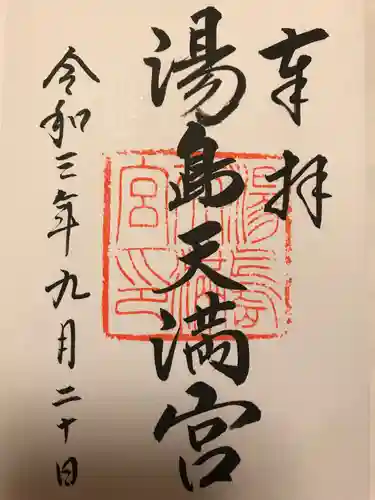 奉拝
湯島天満宮
令和三年九月二十日
湯島
天満
宮印